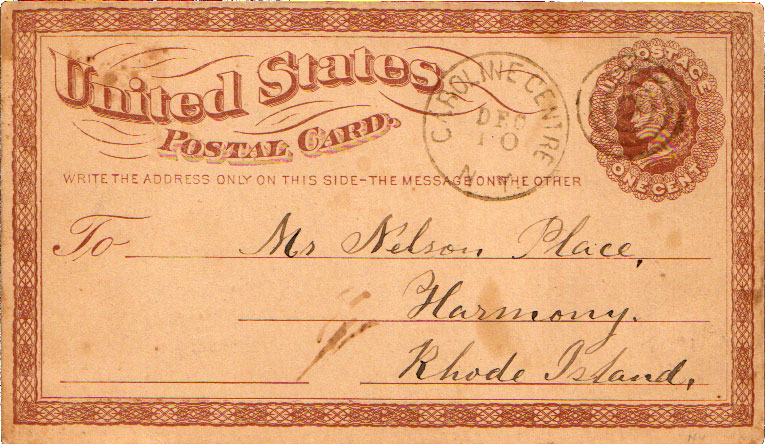 United States
POSTAL CARD.
U.S. POSTAGE
ONE CENT
CAROLINE CENTRE
DEC
10
N.Y.
WRITE THE ADDRESS ONLY ON THIS SIDE-THE MESSAGE ON THE OTHER
To Mr Nelson Place,
Harmony.
Rhode Island,